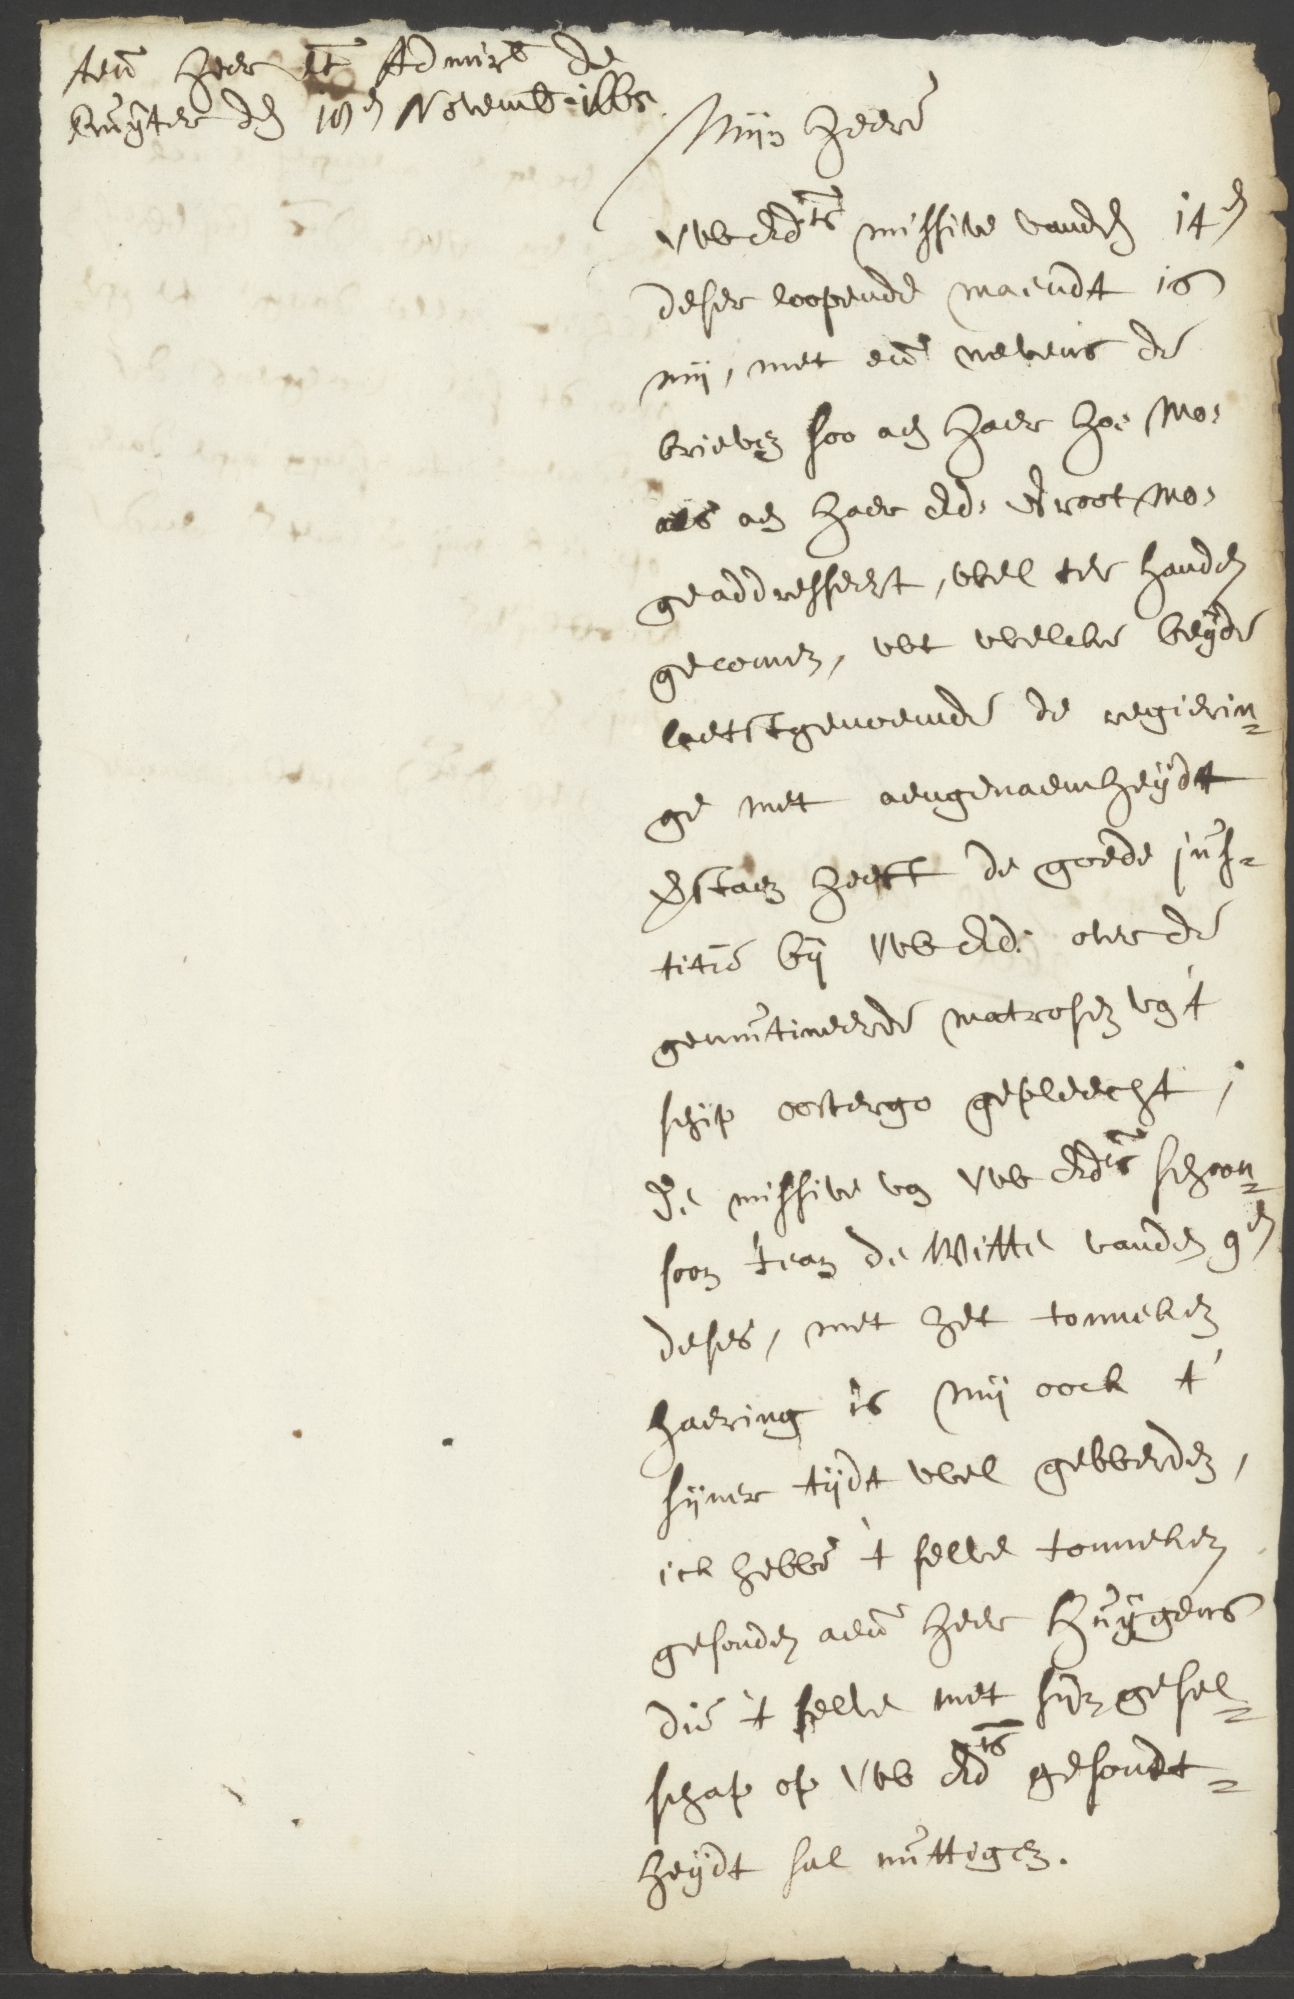 Aen Heer Lt Admirl de
Ruyter den 18en Novemb. 1665
Mijn Heere
Uw Edts missive vanden 14en
deser loopende maendt is
mij, met een nevens de
brieven soo aen Haer Ho: Mo:
als aen Haer Ed: Groot Mo:
geaddresseert, wel ter handen
gecomen, uut welcke beyde
laetstgenoemde de regierin=
ge met aengenaemheydt
verstaen heeft de goede jus=
titie bij Uw Ed: over de
gemutineerde matrosen van 't
schip oostergo gepleecht,
De missive van Uw Edts schoon=
soon Jean de Witte vanden 9en
deses, met het tonneken
haering is mij oock t'
sijner tijdt wel gewerden,
ick hebbe 't selve tonneken
gesonden aen Heer Huygens
die 't selve met sijn gesel=
schap op Uw Edts gesondt=
heydt sal nuttigen.